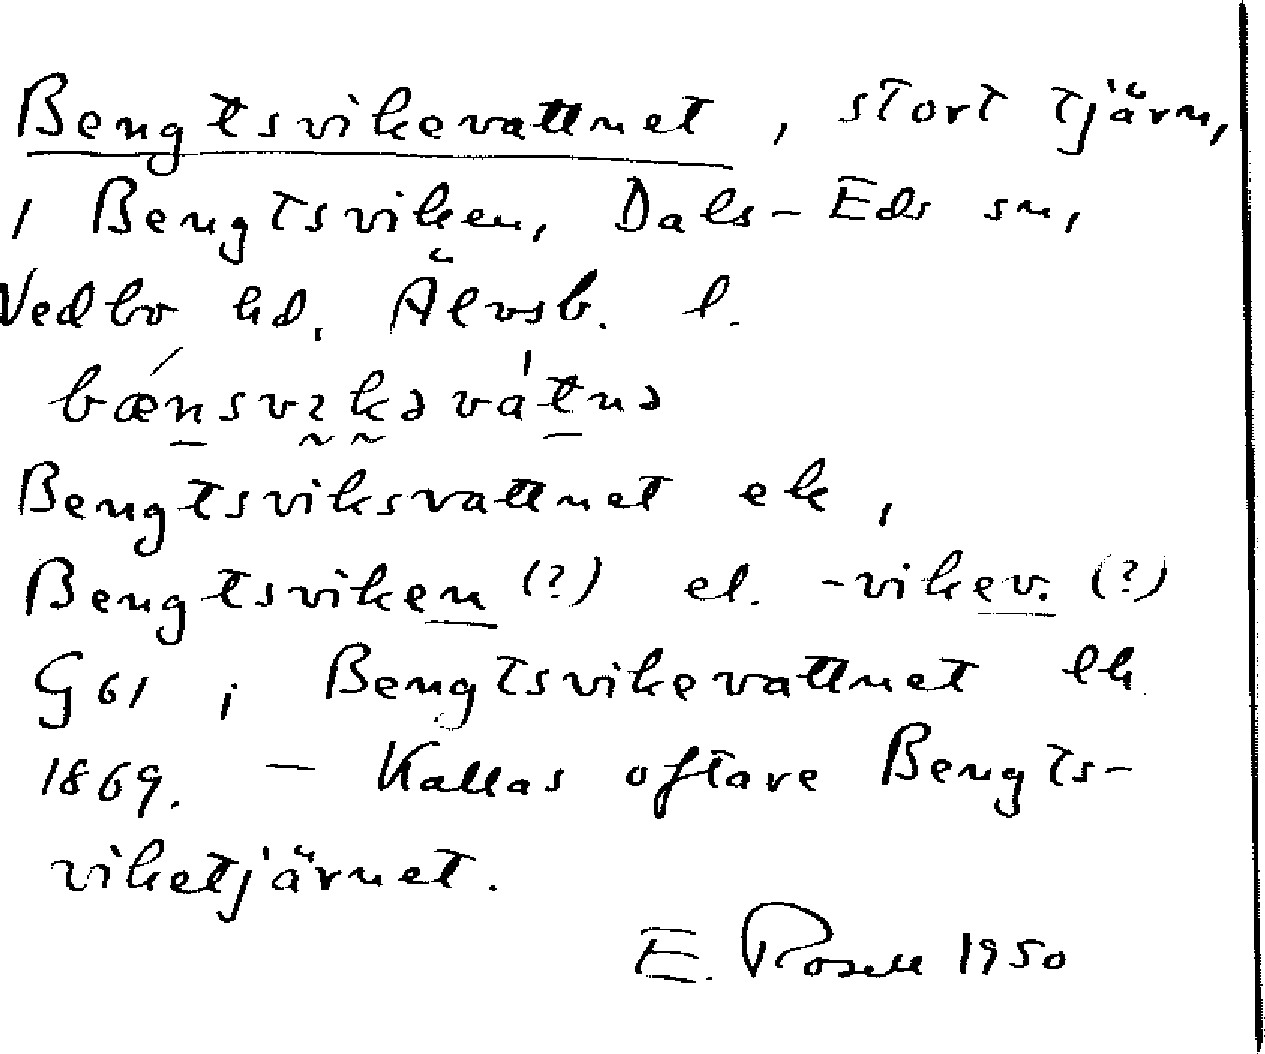 Bengtsvikevattnet, stort tjärn,
i Bengtsviken, Dals-Eds sn,
Vedbo hd, Älvsb. l.
bǽnsvıkəvátnə
Bengtsviksvattnet ek,
Bengtsviken (?) el. -vikev. (?)
G 61; Bengtsvikevattnet
1869. — Kallas oftare Bengts-
viketjärnet.
E. Rosell 1950